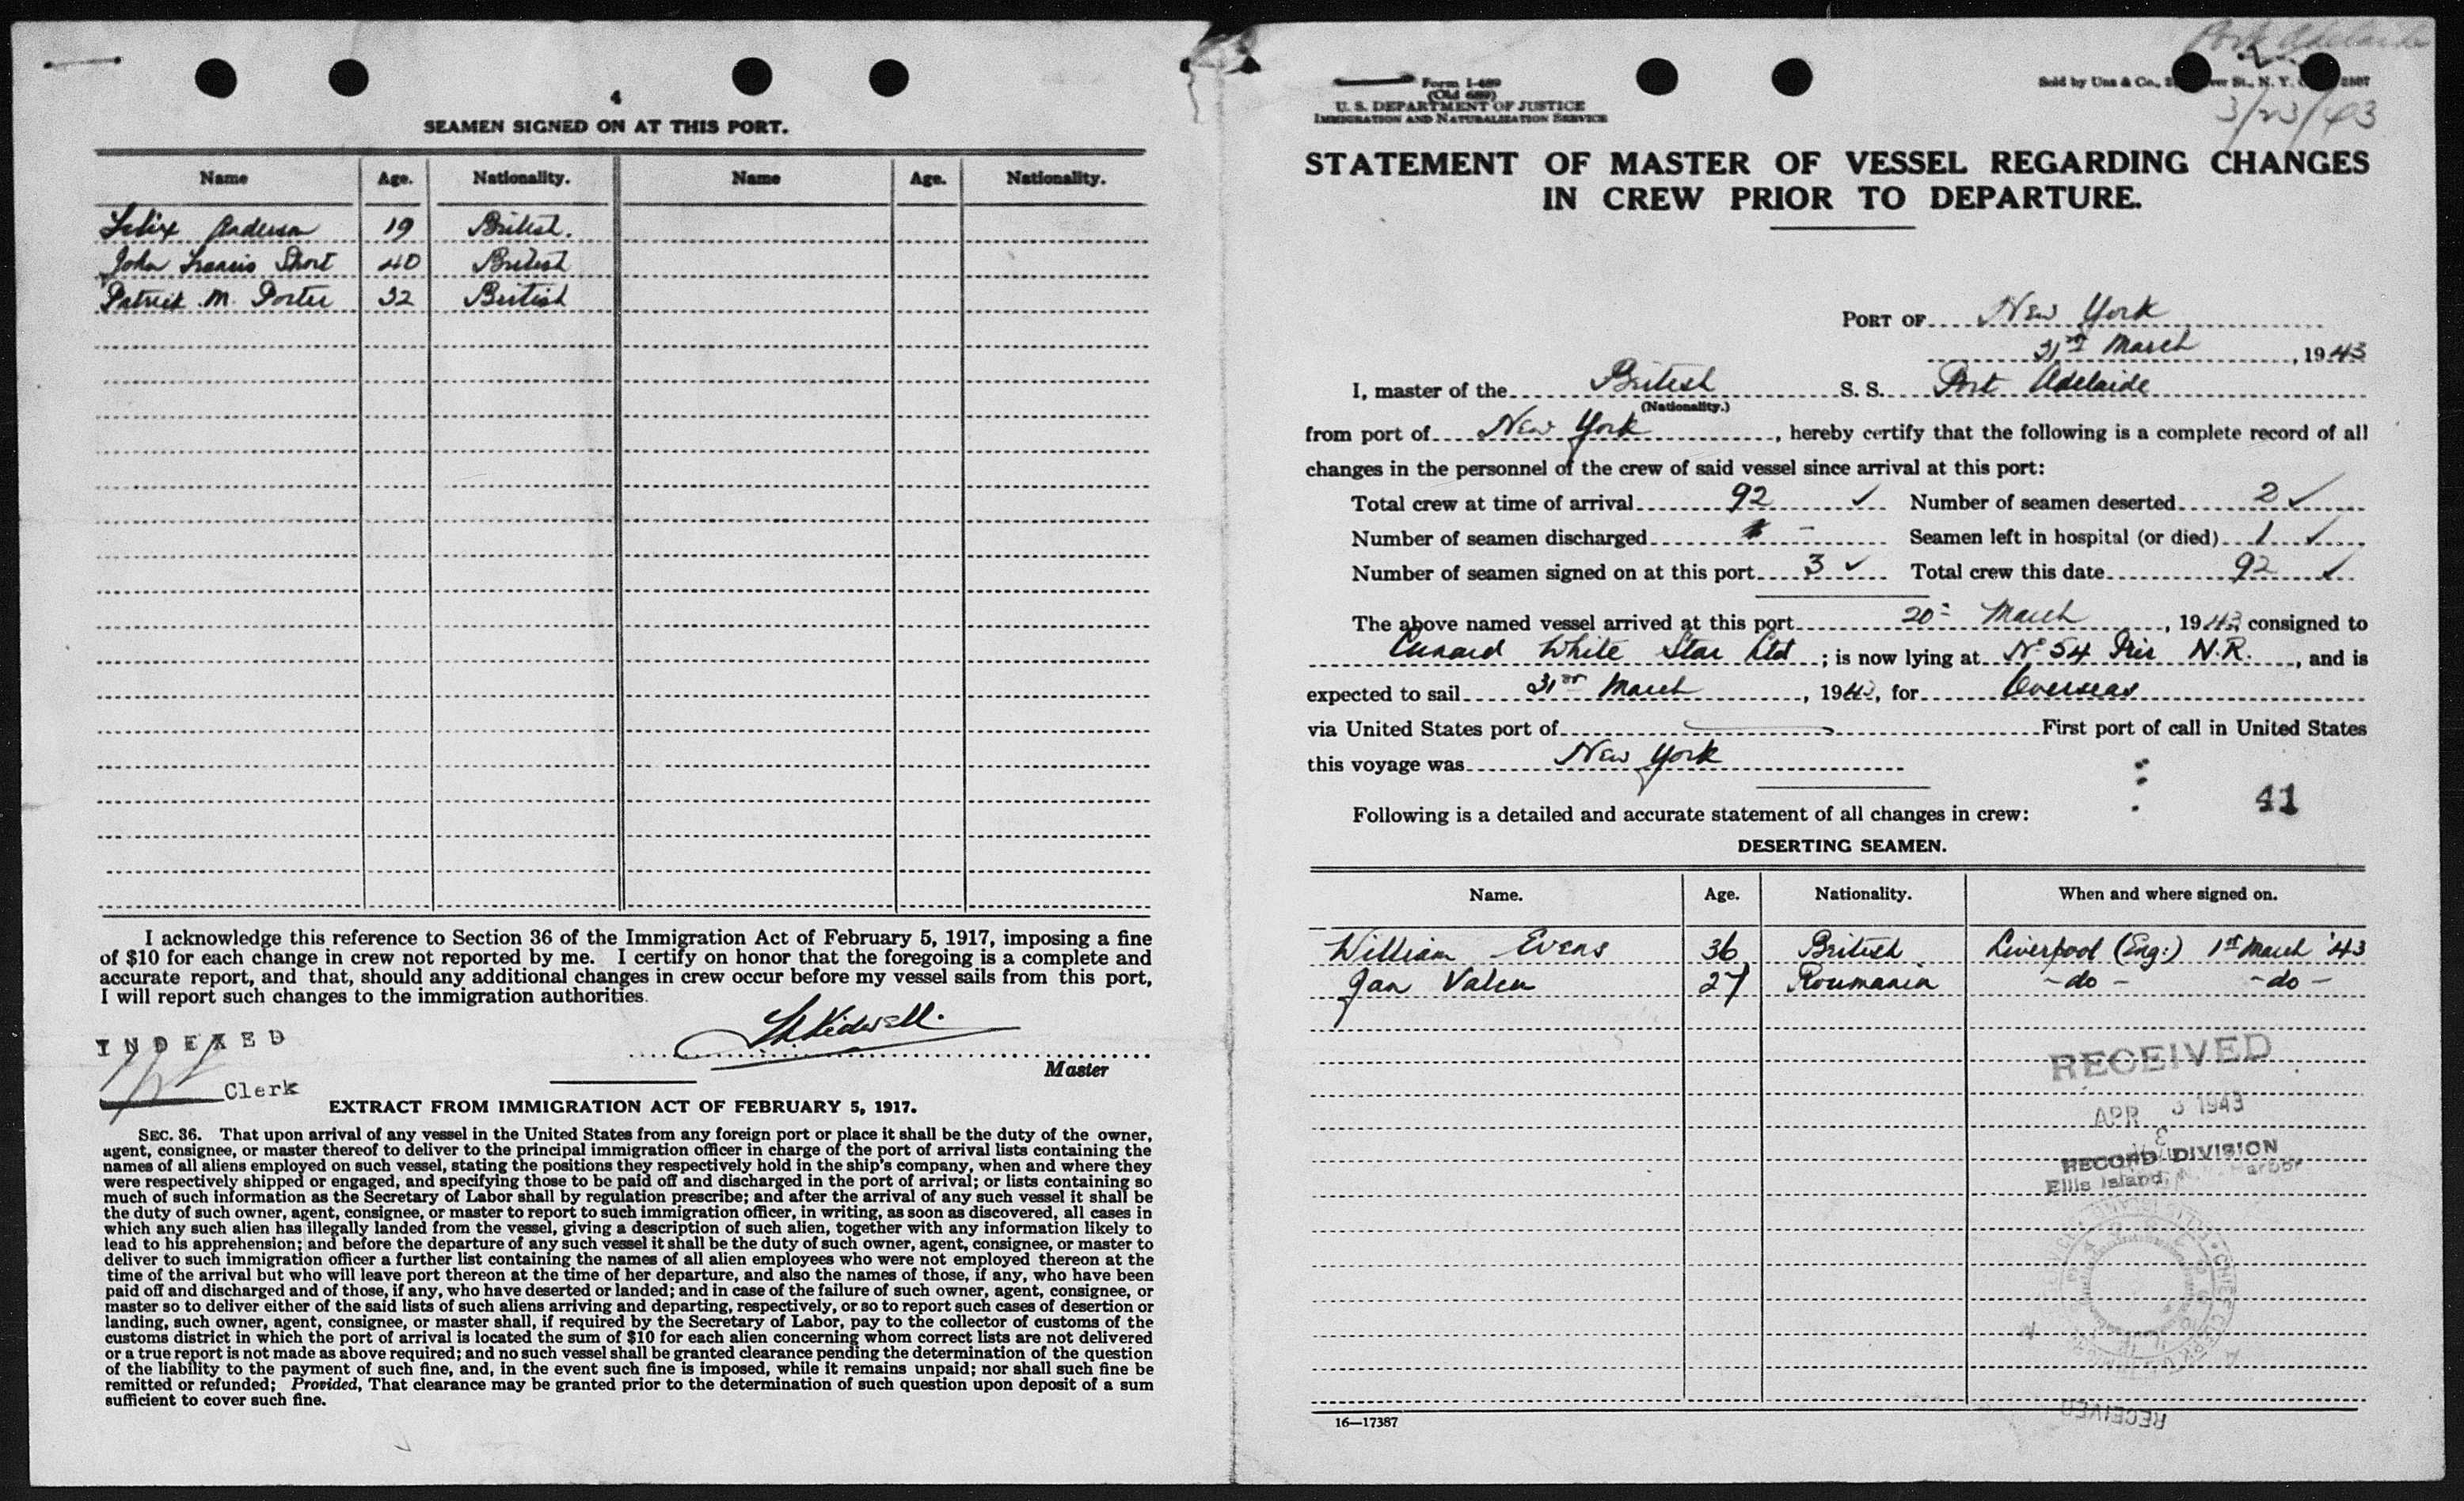 4
SEAMEN SIGNED ON AT THIS PORT.
Name Age. Nationality. Name Age. Nationality.
Felix Anderson 19 British.
John Francis Short 40 British
Patrick M. Porter 32 British
I acknowledge this reference to Section 36 of the Immigration Act of February 5, 1917, imposing a fine
of $10 for each change in crew not reported by me. I certify on honor that the foregoing is a complete and
accurate report, and that, should any additional changes in crew occur before my vessel sails from this port,
I will report such changes to the immigration authorities.
Kidwell.
Master
INDEXED
Clerk
EXTRACT FROM IMMIGRATION ACT OF FEBRUARY 5, 1917.
SEC. 36. That upon arrival of any vessel in the United States from any foreign port or place it shall be the duty of the owner,
agent, consignee, or master thereof to deliver to the principal immigration officer in charge of the port of arrival lists containing the
names of all aliens employed on such vessel, stating the positions they respectively hold in the ship's company, when and where they
were respectively shipped or engaged, and specifying those to be paid off and discharged in the port of arrival; or lists containing so
much of such information as the Secretary of Labor shall by regulation prescribe; and after the arrival of any such vessel it shall be
the duty of such owner, agent, consignee, or master to report to such immigration officer, in writing, as soon as discovered, all cases in
which any such alien has illegally landed from the vessel, giving a description of such alien, together with any information likely to
lead to his apprehension; and before the departure of any such vessel it shall be the duty of such owner, agent, consignee, or master to
deliver to such immigration officer a further list containing the names of all alien employees who were not employed thereon at the
time of the arrival but who will leave port thereon at the time of her departure, and also the names of those, if any, who have been
paid off and discharged and of those, if any, who have deserted or landed; and in case of the failure of such owner, agent, consignee, or
master so to deliver either of the said lists of such aliens arriving and departing, respectively, or so to report such cases of desertion or
landing, such owner, agent, consignee, or master shall, if required by the Secretary of Labor, pay to the collector of customs of the
customs district in which the port of arrival is located the sum of $10 for each alien concerning whom correct lists are not delivered
or a true report is not made as above required; and no such vessel shall be granted clearance pending the determination of the question
of the liability to the payment of such fine, and, in the event such fine is imposed, while it remains unpaid; nor shall such fine be
remitted or refunded; Provided, That clearance may be granted prior to the determination of such question upon deposit of a sum
sufficient to cover such fine.
Port Adelaide
Form I-489
(Old 689)
U. S. DEPARTMENT OF JUSTICE
IMMIGRATION AND NATURALIZATION SERVICE
Sold by Unz & Co., St., N. Y.
3/23/43
STATEMENT OF MASTER OF VESSEL REGARDING CHANGES
IN CREW PRIOR TO DEPARTURE.
PORT OF New York
31st March, 1943
I, master of the British S. S. Port Adelaide
(Nationality.)
from port of New York, hereby certify that the following is a complete record of all
changes in the personnel of the crew of said vessel since arrival at this port:
Total crew at time of arrival 92 ✓ Number of seamen deserted 2 ✓
Number of seamen discharged - Seamen left in hospital (or died) 1 ✓
Number of seamen signed on at this port 3 ✓ Total crew this date 92 ✓
The above named vessel arrived at this port 20th March, 1943 consigned to
Cunard White Star Ltd; is now lying at No 54 Pier N.R., and is
expected to sail 31st March, 1943, for Overseas
via United States port of First port of call in United States
this voyage was New York
41
Following is a detailed and accurate statement of all changes in crew:
DESERTING SEAMEN.
Name. Age. Nationality. When and where signed on.
William Evens 36 British Liverpool (Eng:) 1st March '43
Jan Valen 27 Roumania -do- -do-
RECEIVED
APR 3 1943
RECORD DIVISION
Ellis Island, N. Y. Harbor
RECEIVED
16—17387